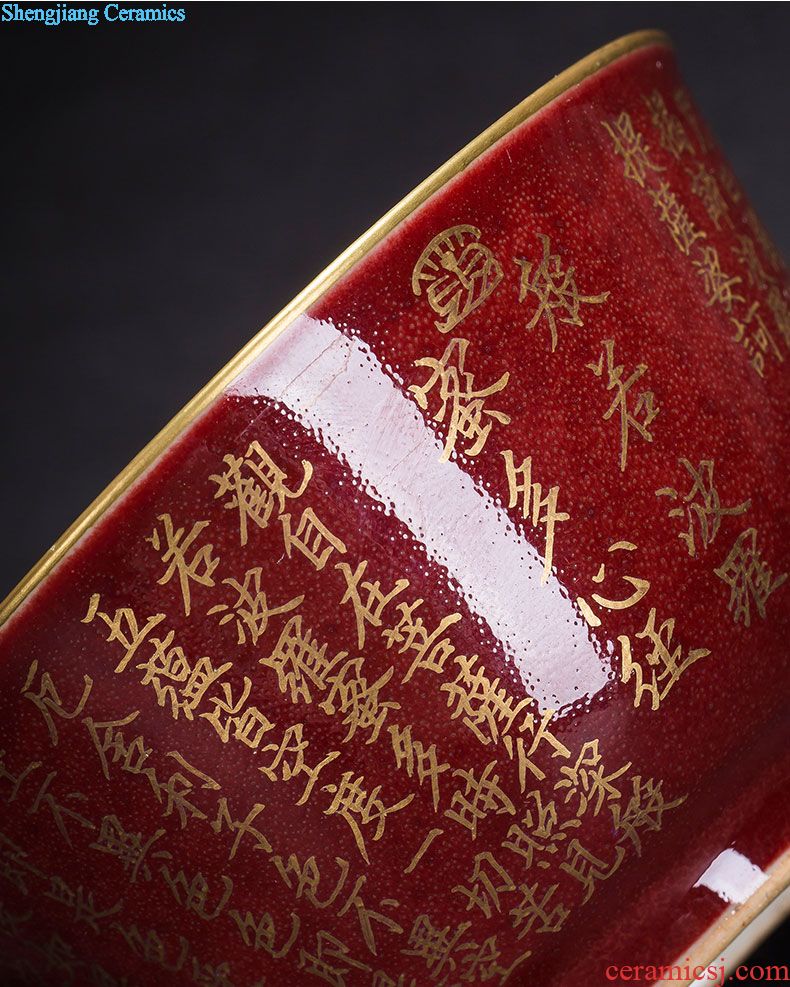 Shengjiang Ceramics
提薩婆訶
般若波羅
蜜多心經
觀自在菩薩行深般
若波羅蜜多時照見
五蘊皆空度一切苦
厄舍利子色不異空
不異色色即
即是色
ceramicsj.com